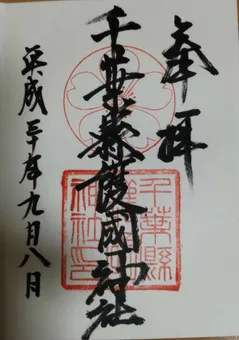 奉拝
千葉縣護國神社
千葉縣護國神社印
平成三十年九月八日